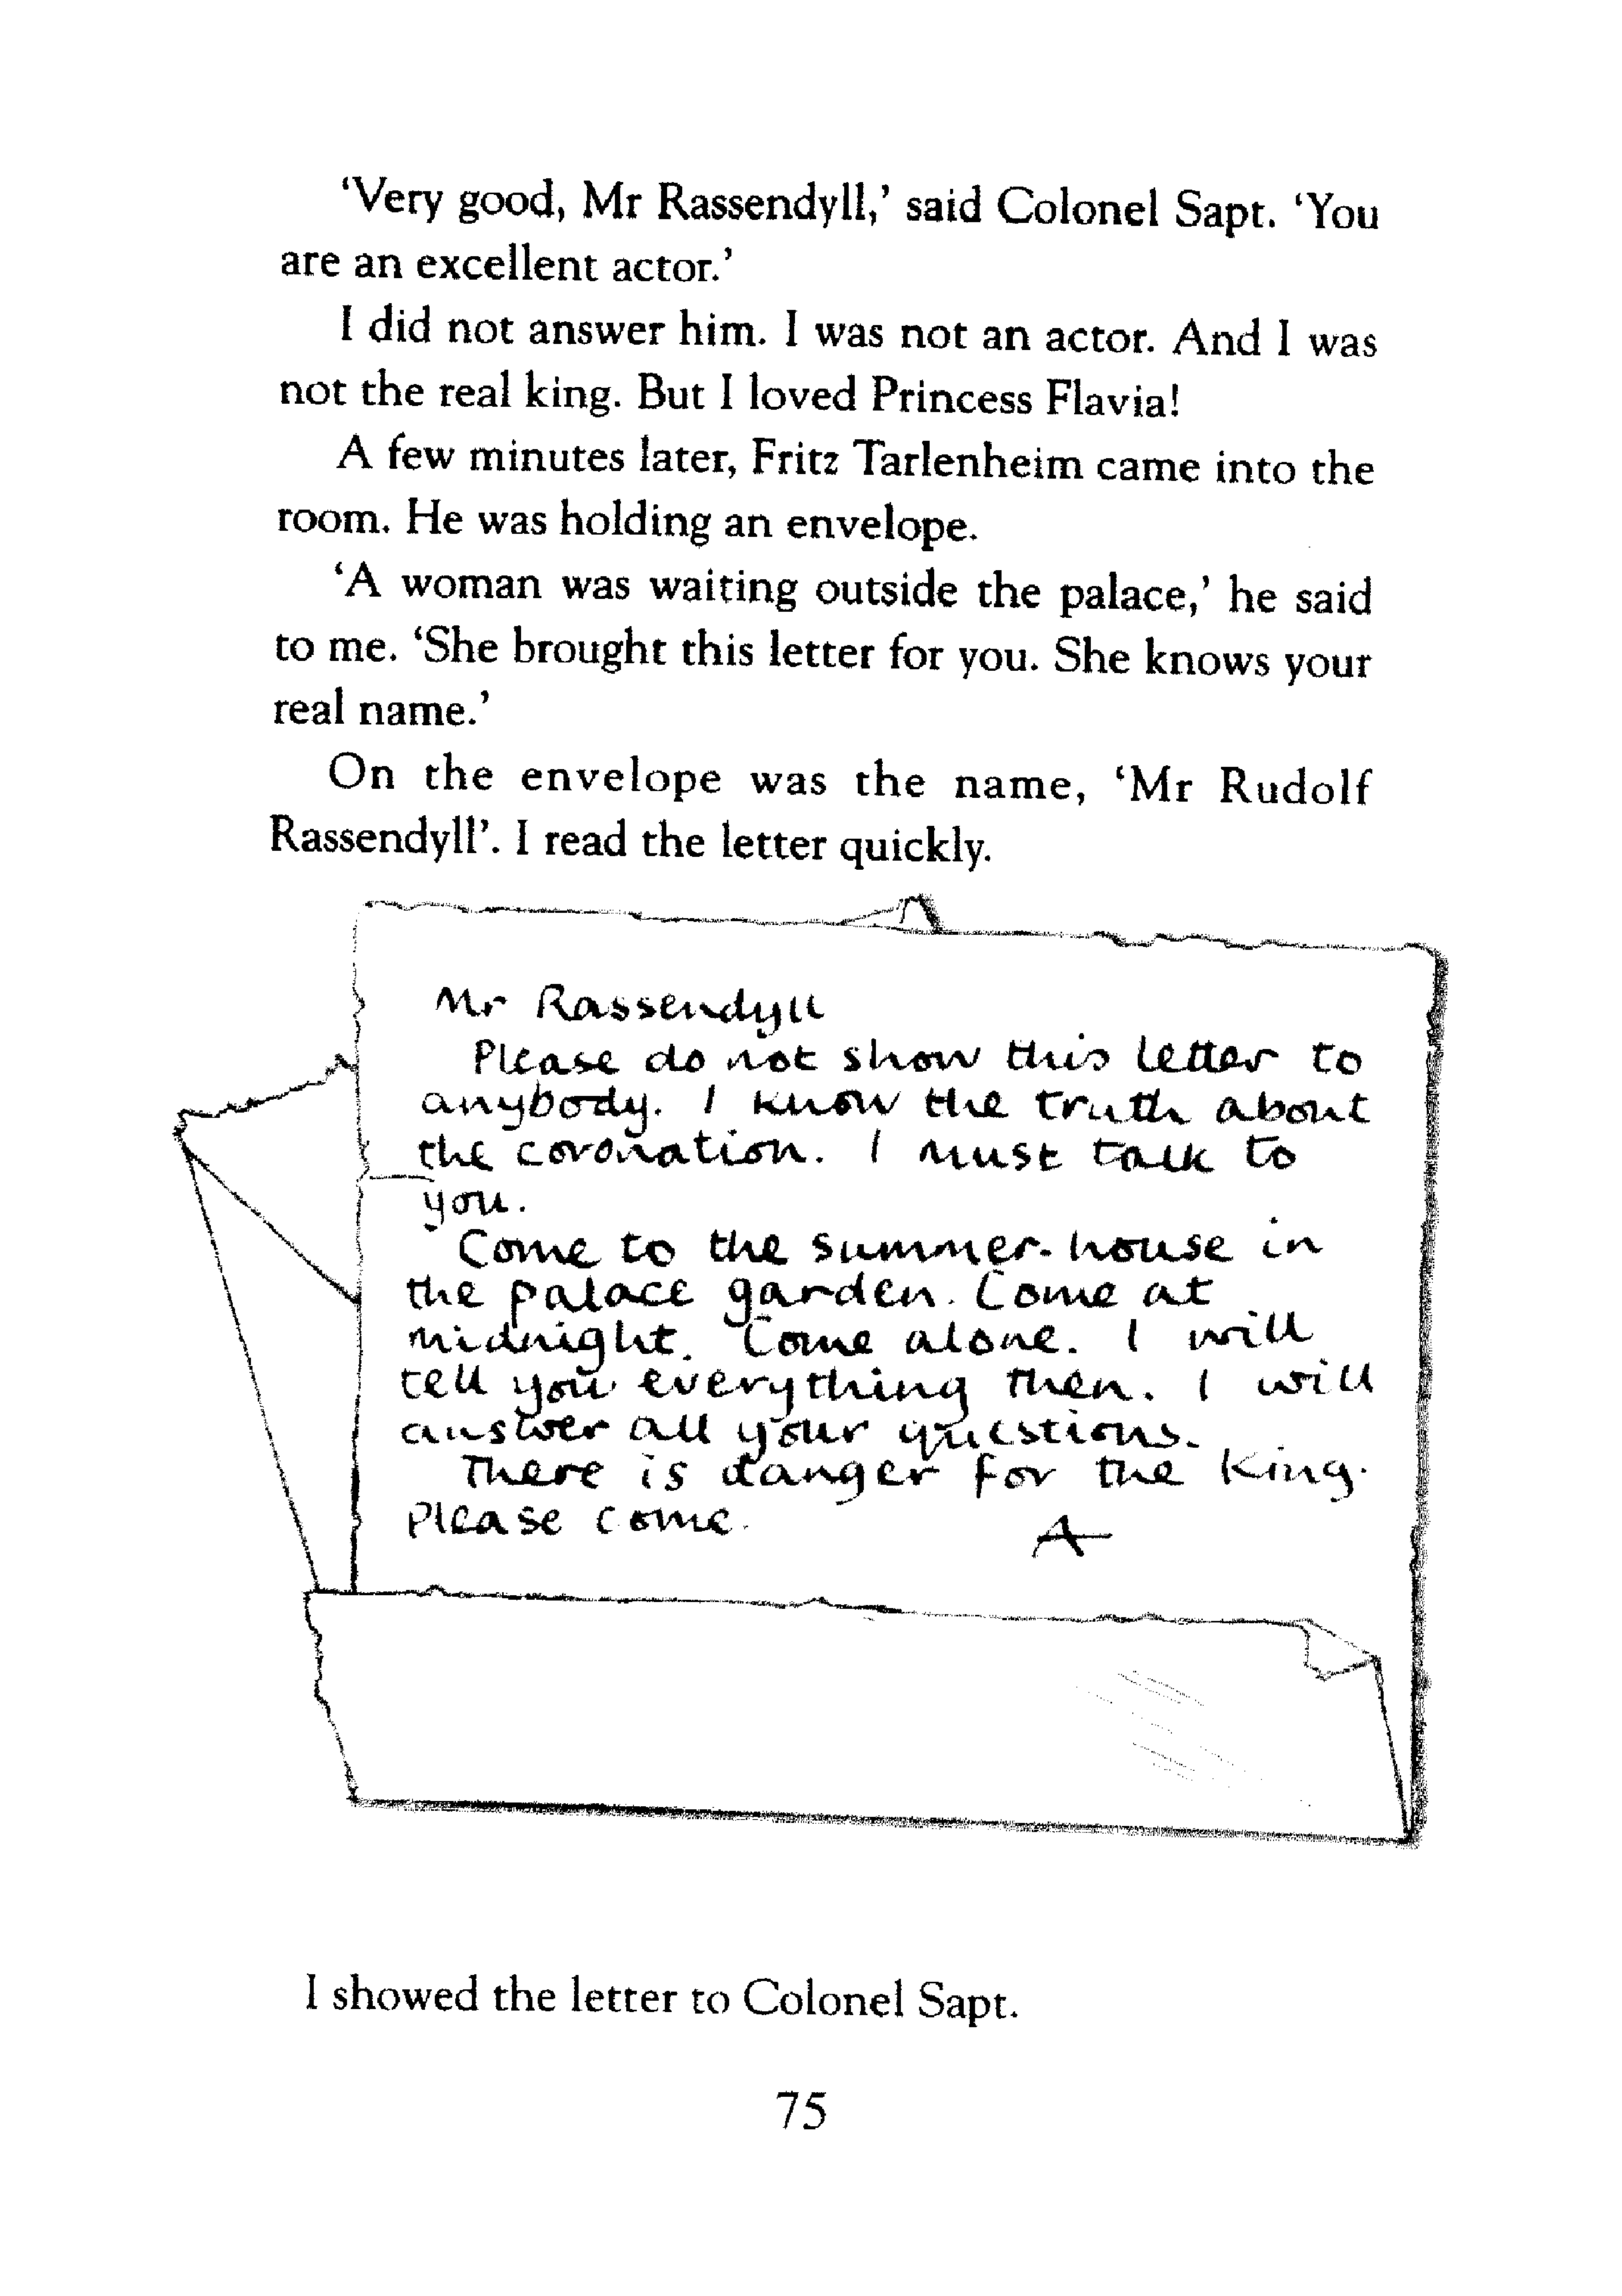 ‘Very good, Mr Rassendyll,’ said Colonel Sapt. ‘You
are an excellent actor.’
I did not answer him. I was not an actor. And I was
not the real king. But I loved Princess Flavia!
A few minutes later, Fritz Tarlenheim came into the
room. He was holding an envelope.
‘A woman was waiting outside the palace,’ he said
to me. ‘She brought this letter for you. She knows your
real name.’
On the envelope was the name, ‘Mr Rudolf
Rassendyll’. I read the letter quickly.
Mr Rassendyll
Please do not show this letter to
anybody. I know the truth about
the coronation. I must talk to
you.
Come to the summer-house in
the palace garden. Come at
midnight. Come alone. I will
tell you everything then. I will
answer all your questions.
There is danger for the King.
Please come.
A
I showed the letter to Colonel Sapt.
75